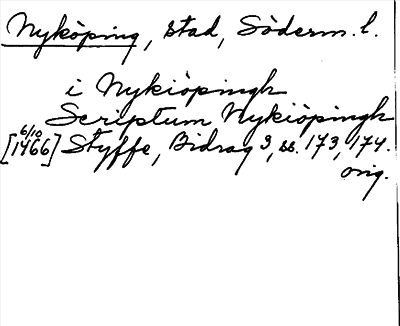 Nyköping, stad, Söderm. l.
i Nykiöpingh
Scriptum Nykiöpingh
6/10
[1466] Styffe, Bidrag 3, ss. 173, 174.
orig.